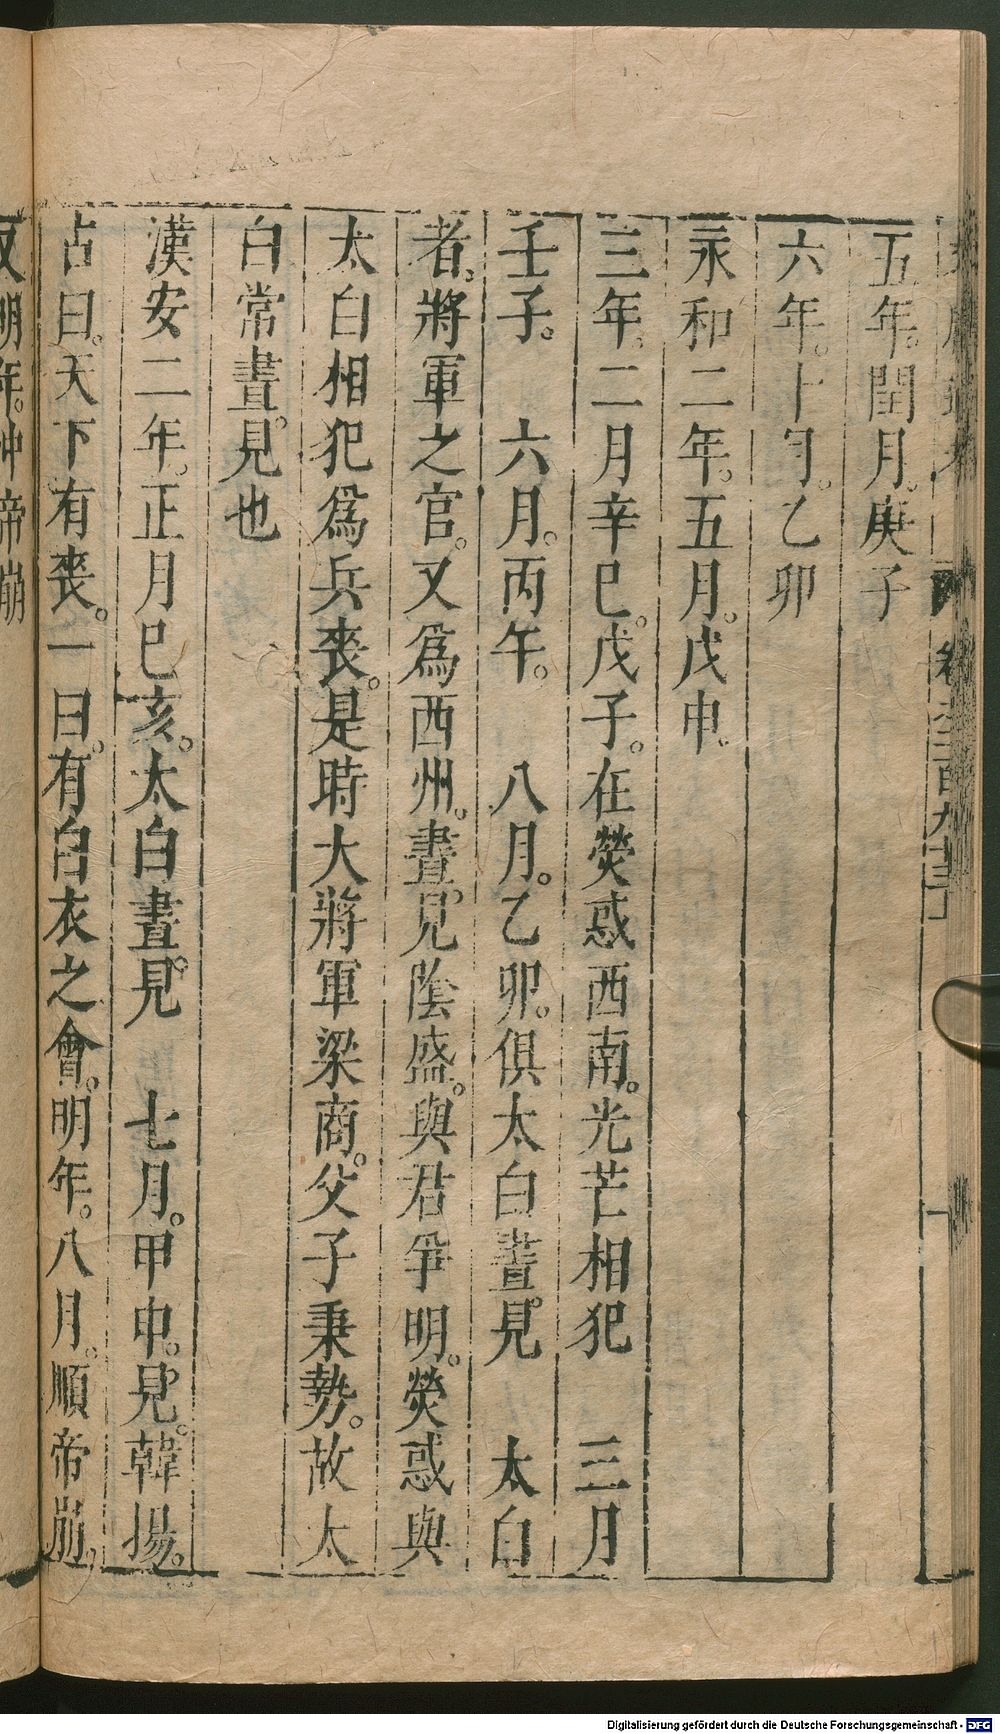 五年。閏月。庚子
六年。十月。乙卯
永和二年。五月。戊申。
三年。二月辛巳。戊子。在熒惑西南。光芒相犯　三月
壬子。　六月。丙午。　八月。乙卯。俱太白晝。見　太白
者。將軍之官。又爲西州。晝。見陰盛。與君爭明。熒惑與
太白相犯爲兵喪。是時大將軍梁商。父子秉勢。故太
白常晝。見也
漢安二年。正月巳亥。太白晝。見　七月。甲申。見。韓揚。
占曰。天下有喪。一曰。有白衣之會。明年。八月。順帝崩。
又明年。沖帝崩
Digitalisierung gefördert durch die Deutsche Forschungsgemeinschaft - DFG